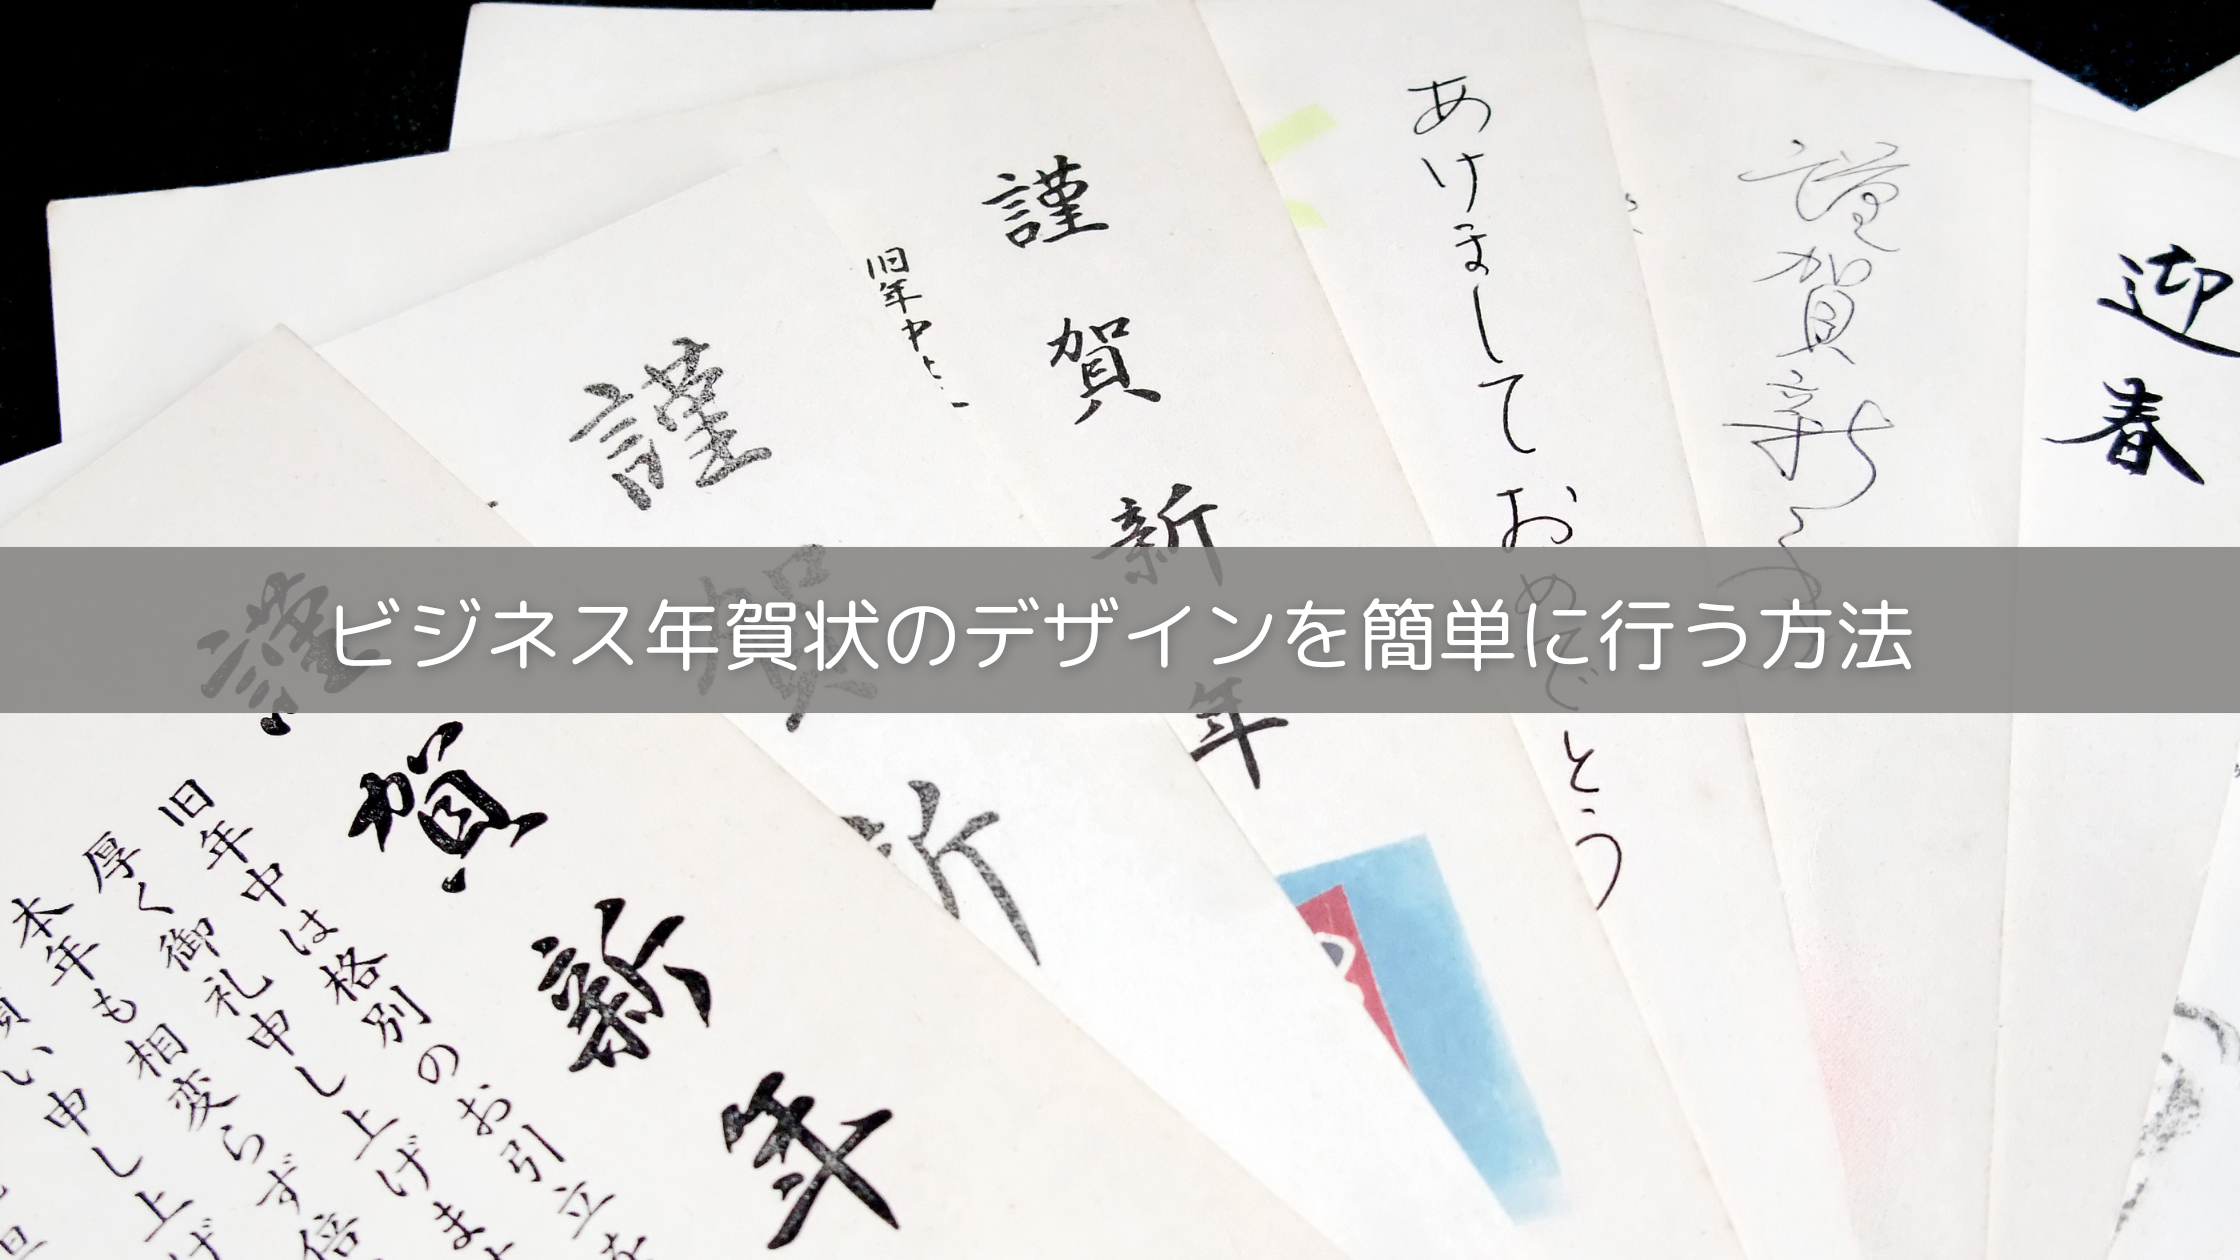 ビジネス年賀状のデザインを簡単に行う方法
迎春
謹賀新年
あけまして
おめでとう
謹賀新年
旧年中
謹賀新
謹賀新年
旧年中は格別のお引立を
厚く御礼申し上げます
本年も相変らず倍
願い申し上げ
旦